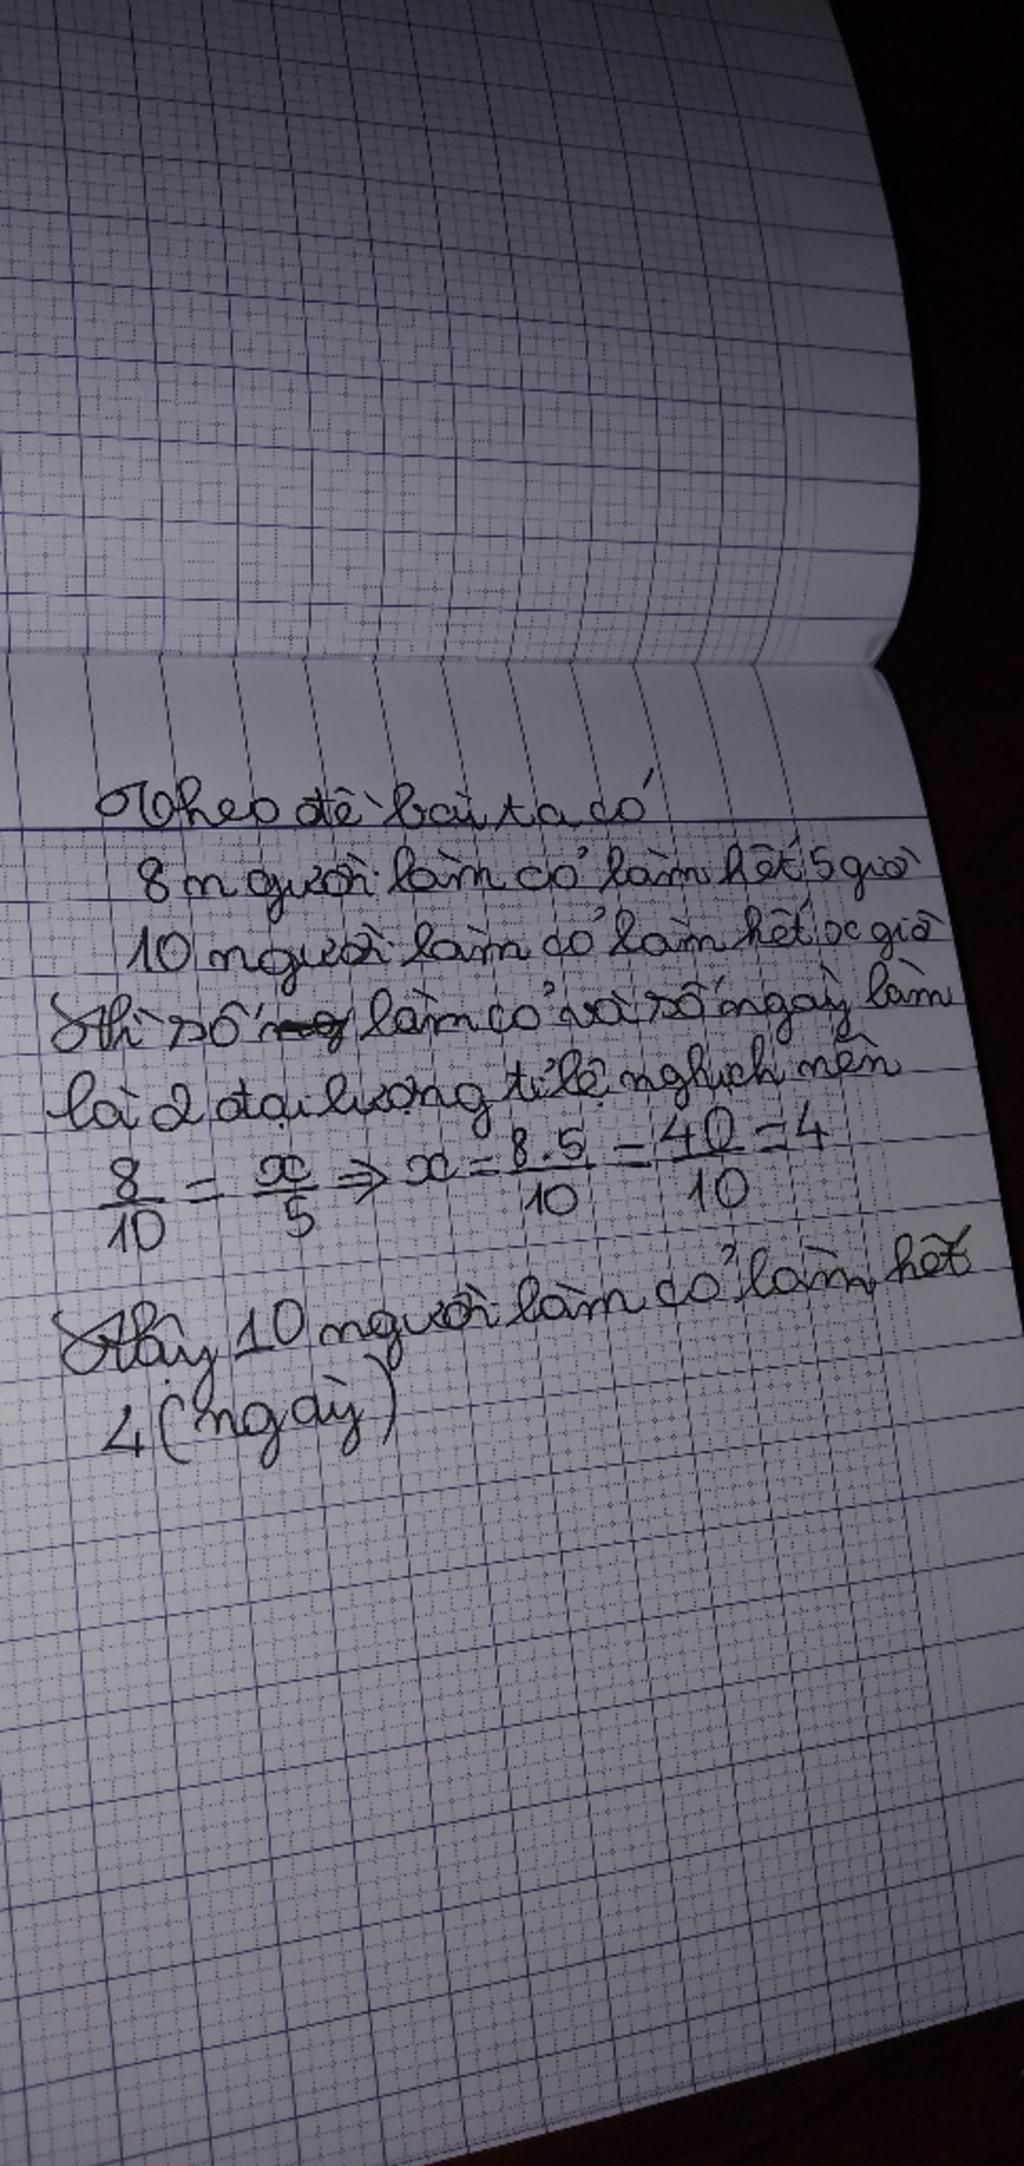 Theo đề bài ta có
8 người làm cỏ làm hết 5 giờ
10 người làm cỏ làm hết x giờ
Thì số làm cỏ và số ngày làm
là 2 đại lượng tỉ lệ nghịch nên
8/10 = x/5 ⇒ x = 8.5/10 = 40/10 = 4
Vậy 10 người làm cỏ làm hết
4 (ngày)